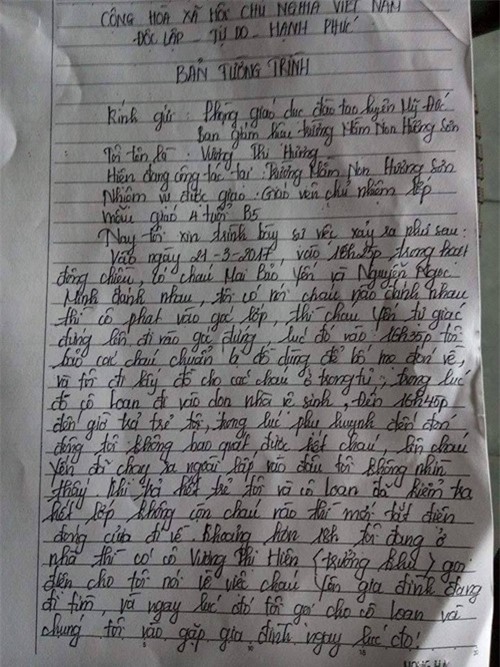 CỘNG HÒA XÃ HỘI CHỦ NGHĨA VIỆT NAM
ĐỘC LẬP _ TỰ DO _ HẠNH PHÚC
BẢN TƯỜNG TRÌNH
Kính gửi : Phòng giáo dục đào tạo huyện Mỹ Đức
Ban giám hiệu trường Mầm Non Hương Sơn
Tôi tên là : Vương Thị Hương
Hiện đang công tác tại : Trường Mầm Non Hương Sơn
Nhiệm vụ được giao : Giáo viên chủ nhiệm lớp
mẫu giáo 4 tuổi B5
Nay tôi xin trình bày sự việc xảy ra như sau :
Vào ngày 21-3-2017, vào 16h25p, trong hoạt
động chiều, có cháu Mai Bảo Yến và Nguyễn Ngọc
Minh đánh nhau, tôi có nói cháu nào đánh nhau
thì cô phạt vào góc lớp, thì cháu Yến tự giác
đứng lên đi vào góc đứng, lúc đó vào 16h35p tôi
bảo các cháu chuẩn bị đồ dùng để bố mẹ đón về,
và tôi đi lấy đồ cho các cháu ở trong tủ, trong lúc
đó cô Loan đi vào dọn nhà vệ sinh. Đến 16h45p
đến giờ trả trẻ tôi, trong lúc phụ huynh đến đón
đông tôi không bao quát được hết cháu lên cháu
Yến đã chạy ra ngoài lớp vào đâu tôi không nhìn
thấy. Khi trả hết trẻ tôi và cô Loan đã kiểm tra
hết lớp không còn cháu nào thì mới tắt điện
đóng cửa đi về. Khoảng hơn tôi đang ở
nhà thì có cô Vương Thị Hiên (trưởng khu) gọi
điện cho tôi nói về việc cháu Yến gia đình đang
đi tìm, và ngay lúc đó tôi gọi cho cô Loan và
chúng tôi vào gặp gia đình ngay lúc đó!